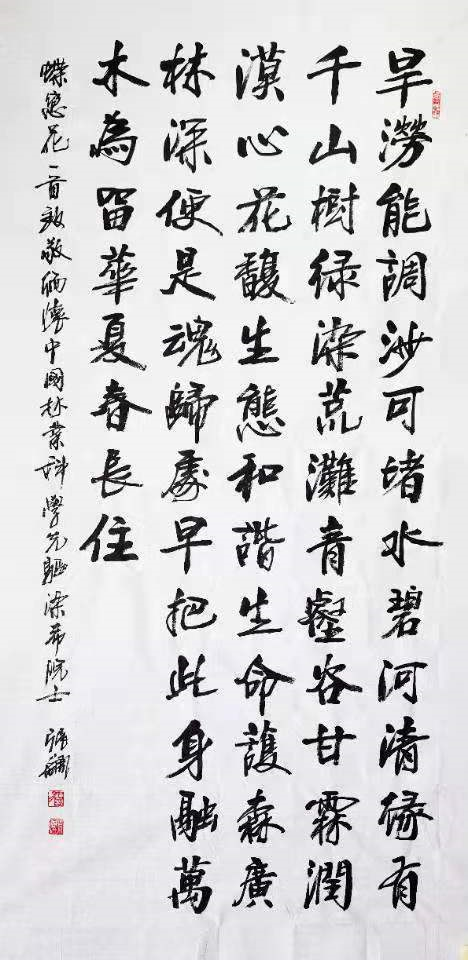 旱澇能調沙可堵水碧河清緣有
千山樹綠染荒灘青壑谷甘霖潤
漠心花馥生態和諧生命護森廣
林深便是魂歸處早把此身融萬
木為留華夏春長住
蝶戀花一首致敬緬懷中國林業科學先驅梁希院士